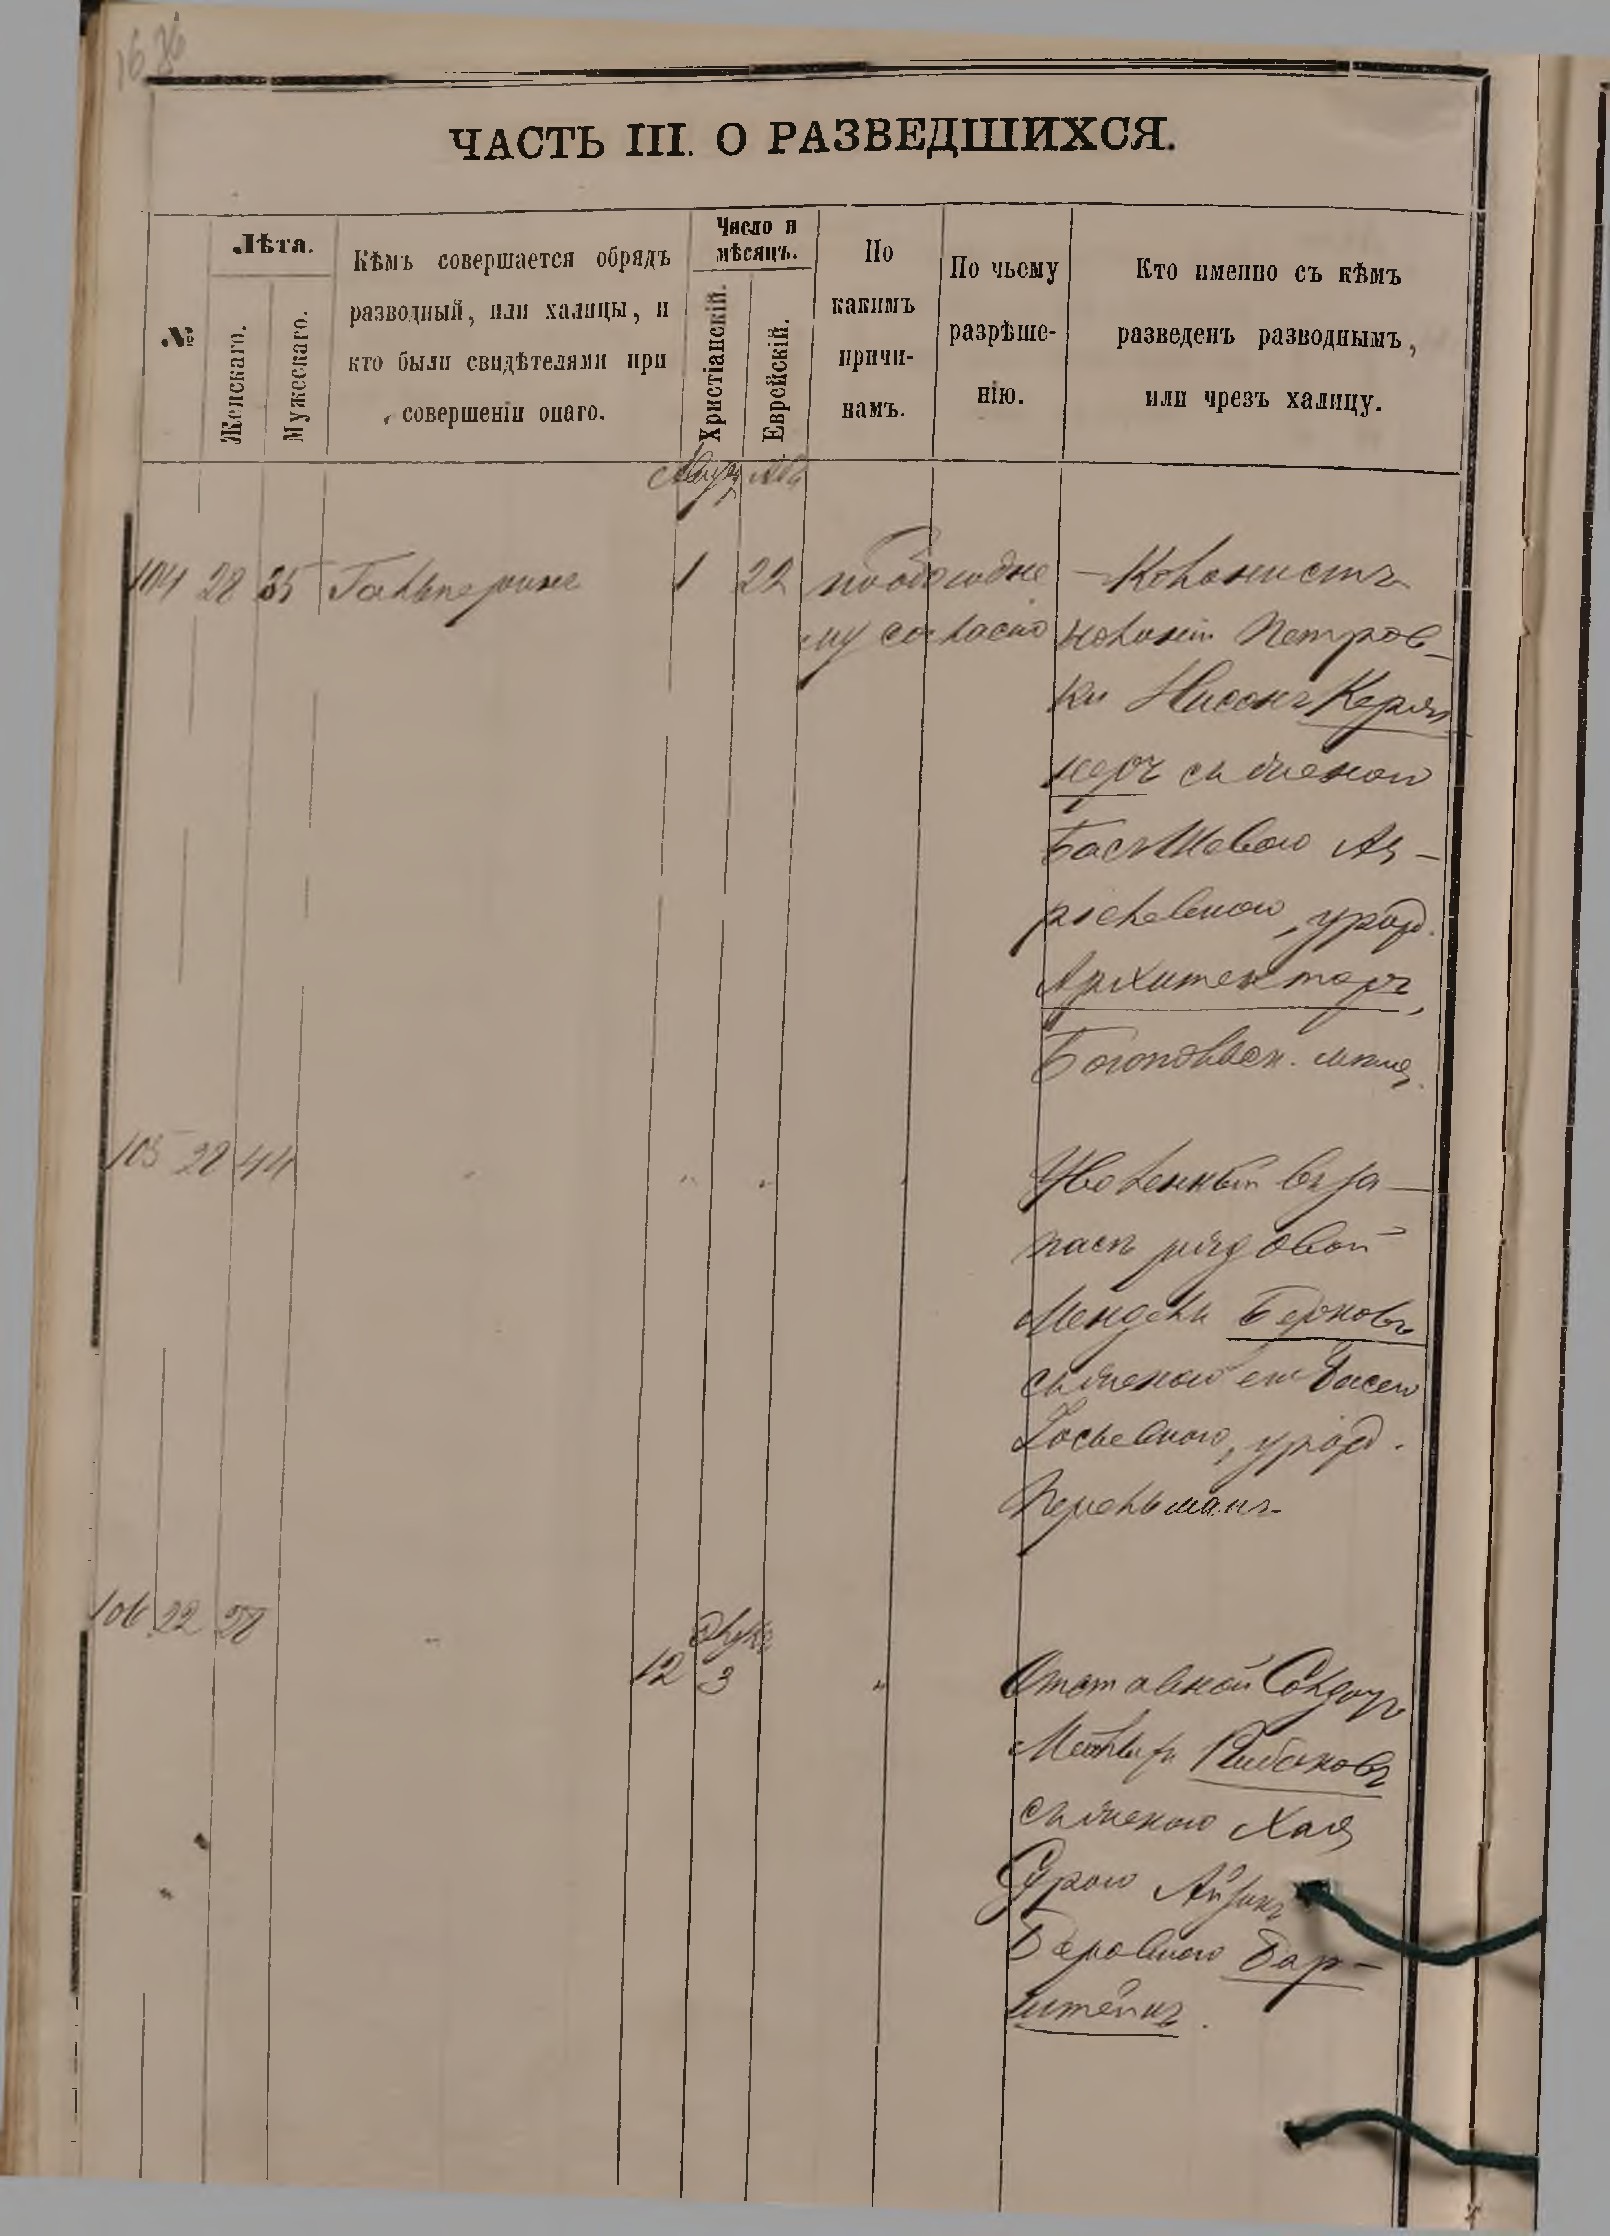 1636
ЧАСТЬ III. О РАЗВЕДШИХСЯ.
№
Лѣта.
Женскаго.
Мужескаго.
Кѣмъ совершается обрядъ
разводный, или халицы, и
кто были свидѣтелями при
совершеніи онаго.
Число и
мѣсяцъ.
Христіанскій.
Еврейскій.
По
какимъ
причи-
намъ.
По чьему
разрѣше-
нію.
Кто именно съ кѣмъ
разведенъ разводнымъ,
или чрезъ халицу.
104 28 35 Гальперинъ 1 22 по обоюдно Колонистъ
му согласію колоніи Петров-
ки Нисонъ
съ женою
Басъ Шевою
урожд.
Архитекторъ,
Богопольск.
105 28 44 Уволенный въ за-
пасъ рядовой
Мендель
съ женою его Басею
Іосьевною, урожд.
Перельманъ
106 22 28
Элулъ
12 3 Отставной Солдатъ
съ женою Хая
Сурою
Беровною Бар-
штейнъ.